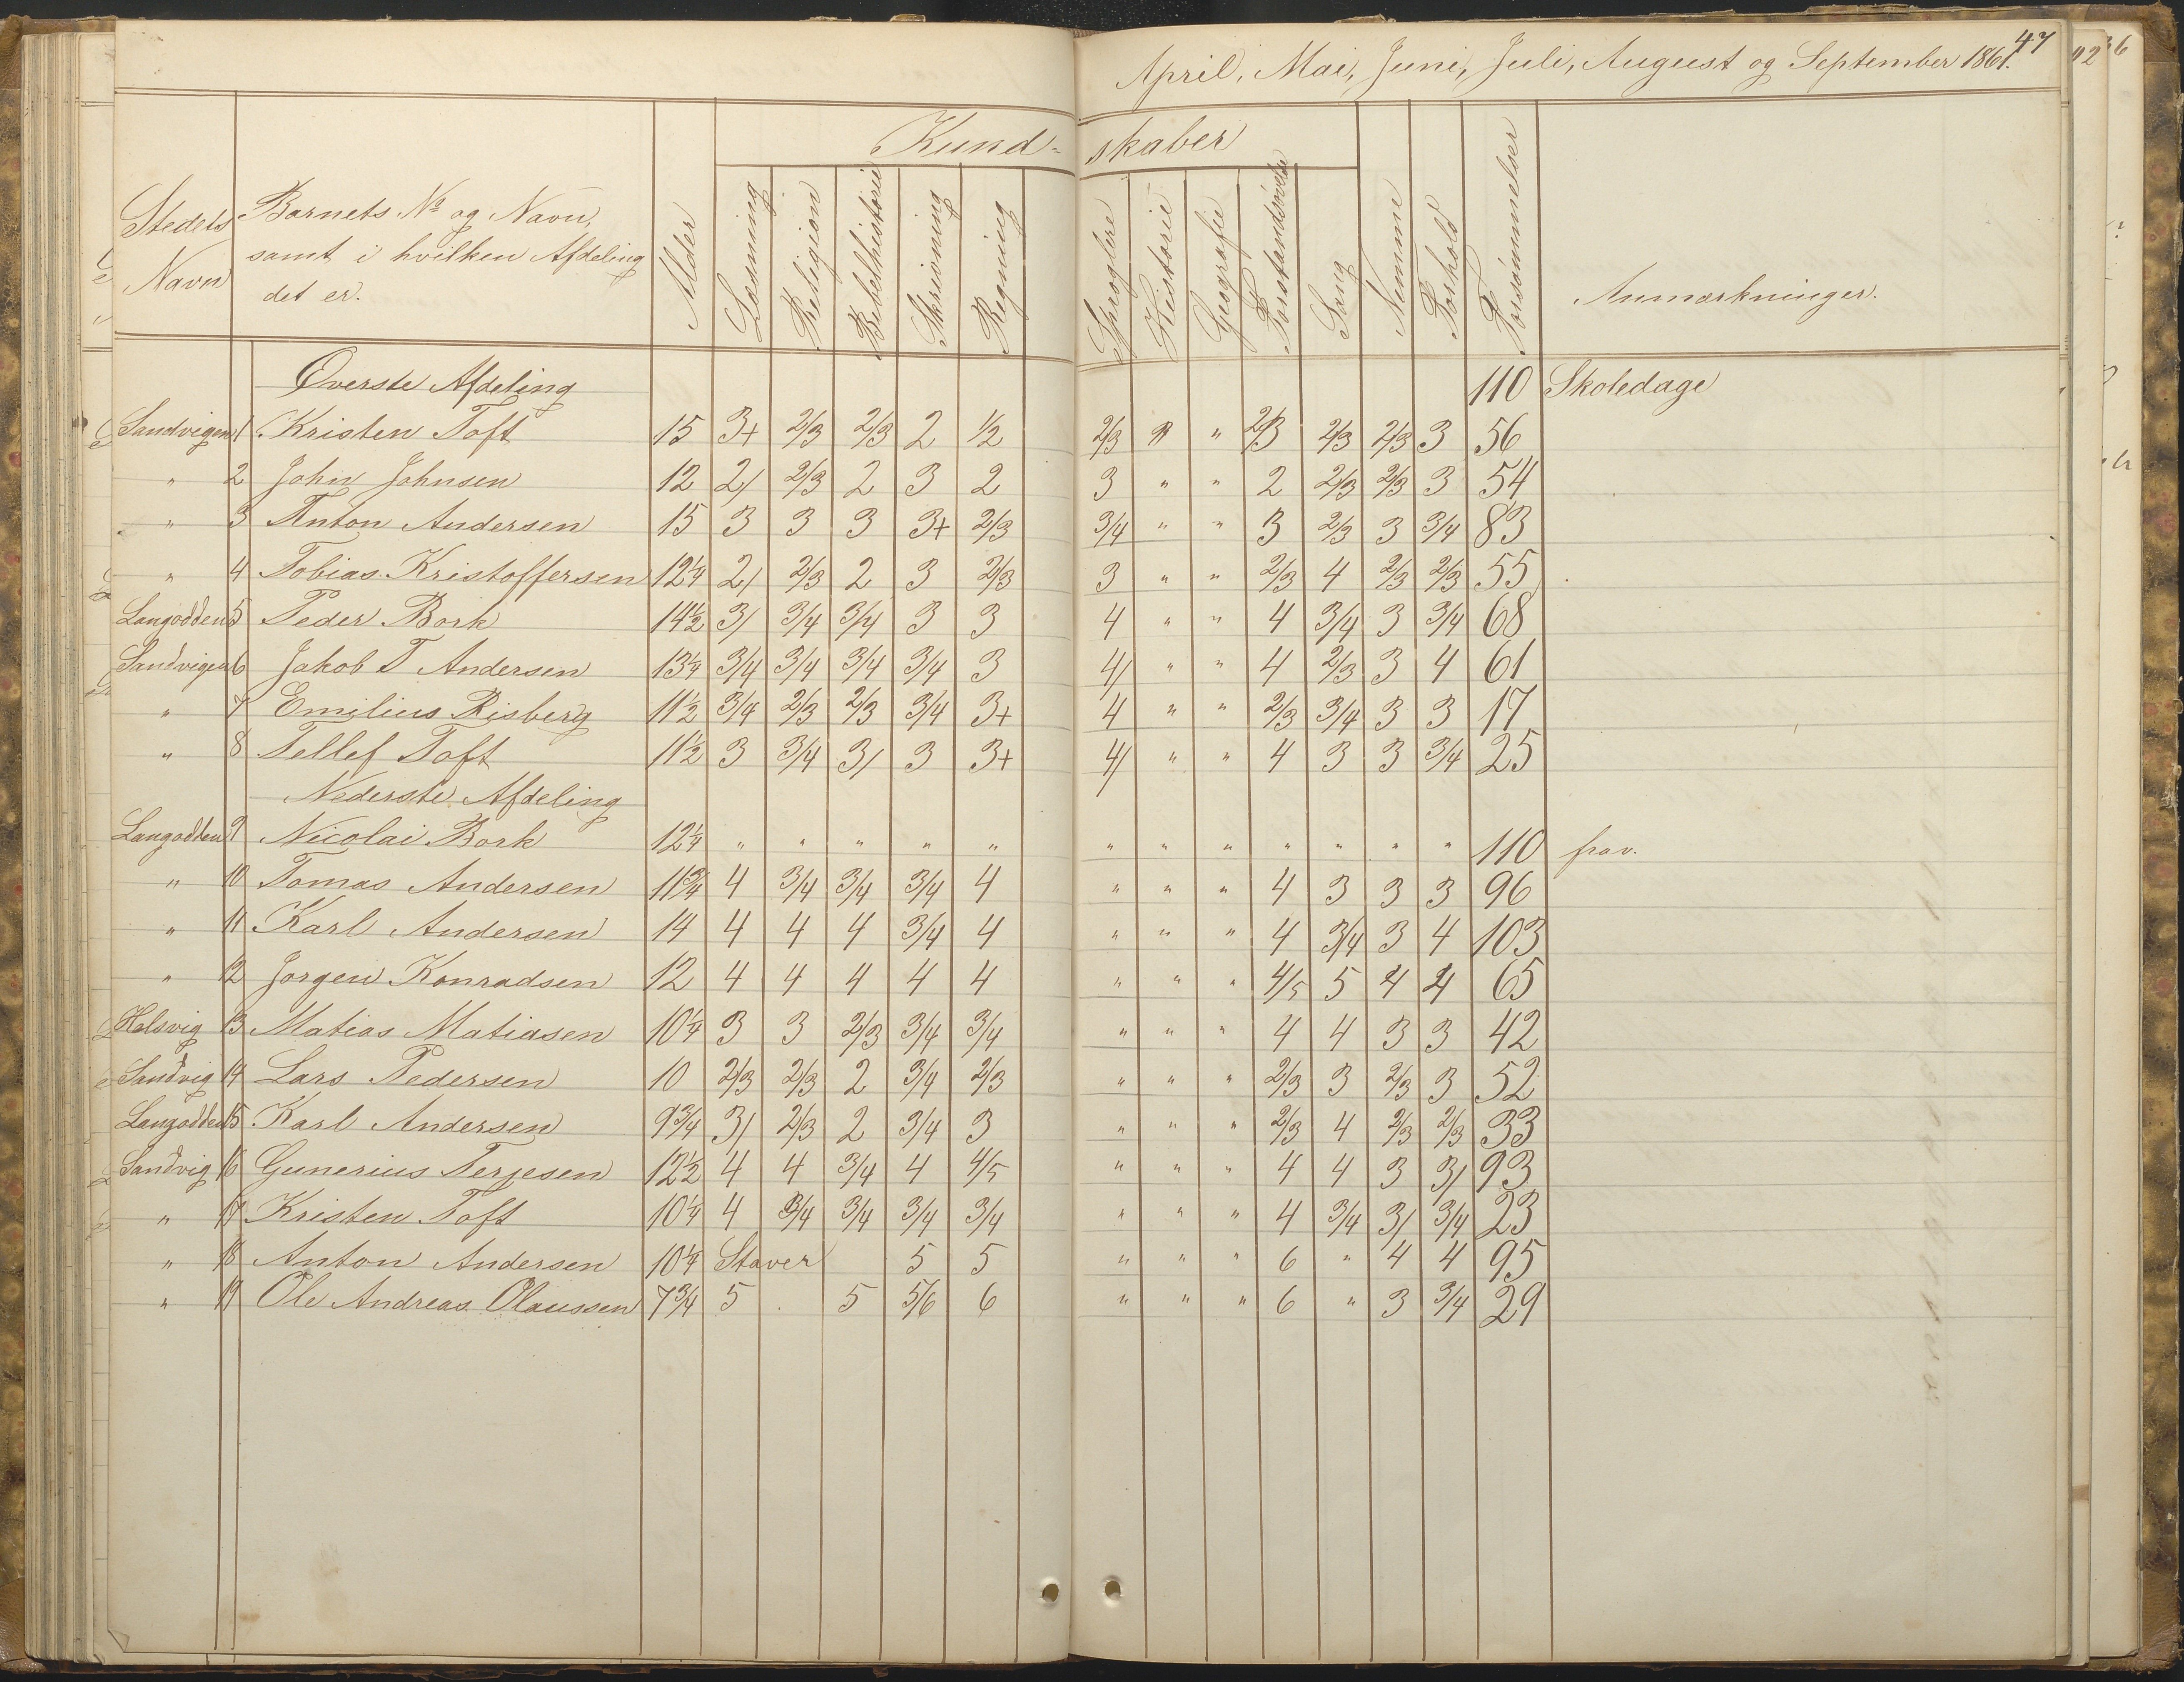 47
April, Mai, Juni, Juli, August og September 1861.
Kund- skaber
Stedets Navn
Barnets No og Navn, samt i hvilken Afdeling det er.
Alder
Læsning
Religion
Bibelhistorie
Skrivning
Regning
Sproglære
Historie
Geografie
Forstandsøvelse
Sang
Nemme
Forhold
Forsømmelser
Anmærkninger.
Øverste Afdeling 110 Skoledage
Sandvigen 1 Kristen Toft 15 3+ 2/3 2/3 2 1/2 2/3 " " 2/3 2/3 2/3 3 56
" 2 John Johnsen 12 2/ 2/3 2 3 2 3 " " 2 2/3 2/3 3 54
" 3 Anton Andersen 15 3 3 3 3+ 2/3 3/4 " " 3 2/3 3 3/4 83
" 4 Tobias Kristoffersen 12 1/4 2/ 2/3 2 3 2/3 3 " " 2/3 4 2/3 2/3 55
Langodden 5 Peder Bork 14 1/2 3/ 3/4 3/4 3 3 4 " " 4 3/4 3 3/4 68
Sandvigen 6 Jakob T Andersen 13 1/4 3/4 3/4 3/4 3/4 3 4/ " " 4 2/3 3 4 61
" 7 Emilius Risberg 11 1/2 3/4 2/3 2/3 3/4 3+ 4 " " 2/3 3/4 3 3 17
" 8 Tellef Toft 11 1/2 3 3/4 3/ 3 3+ 4/ " " 4 3 3 3/4 25
Nederste Afdeling
Langodden 9 Nicolai Bork 12 1/4 " " " " " " " " " " " " 110 frav.
" 10 Tomas Andersen 11 3/4 4 3/4 3/4 3/4 4 " " " 4 3 3 3 96
" 11 Karl Andersen 14 4 4 4 3/4 4 " " " 4 3/4 3 4 103
" 12 Jorgen Konradsen 12 4 4 4 4 4 " " " 4/5 5 4 4 65
Halsvig 13 Matias Matiasen 10 1/4 3 3 2/3 3/4 3/4 " " " 4 4 3 3 42
Sandvig 14 Lars Pedersen 10 2/3 2/3 2 3/4 2/3 " " " 2/3 3 2/3 3 52
Langodden 15 Karl Andersen 9 3/4 3/ 2/3 2 3/4 3 " " " 2/3 4 2/3 2/3 33
Sandvig 16 Gunerius Terjesen 12 1/2 4 4 3/4 4 4/5 " " " 4 4 3 3/ 93
" 17 Kristen Toft 10 1/4 4 3/4 3/4 3/4 3/4 " " " 4 3/4 3/ 3/4 23
" 18 Anton Andersen 10 1/4 Staver 5 5 " " " 6 " 4 4 95
" 19 Ole Andreas Olaussen 7 3/4 5 . 5 5/6 6 " " " 6 " 3 3/4 29